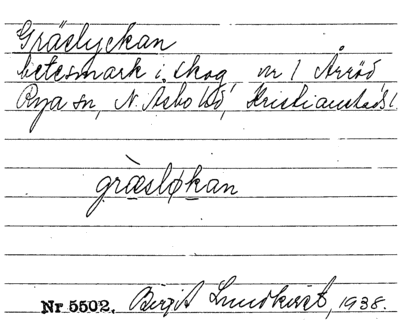 Gräslyckan
betesmark i skog, nr 1 Årröd,
Rya sn, N. Åsbo hd, Kristianstads l.
grὰesløkan
Nr 5502. Birgit Lundkvist, 1938.